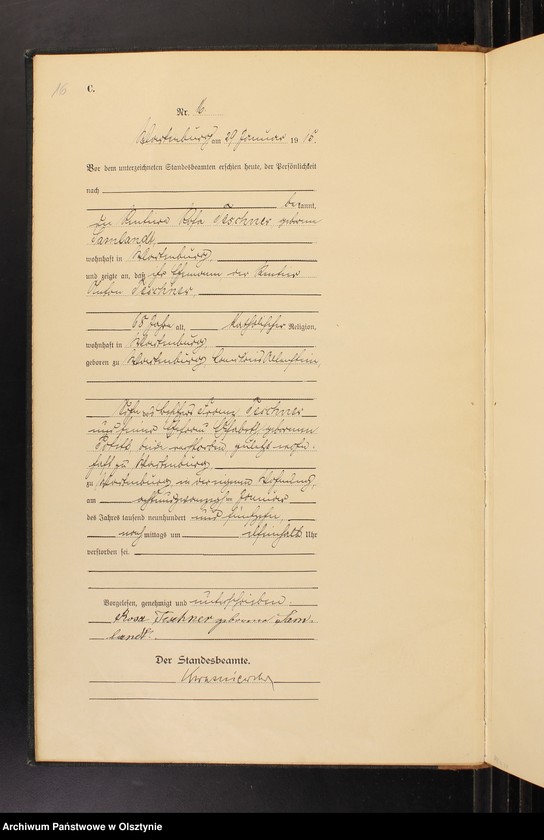 16
C.
Nr. 6
Wartenburg am 29 Januar 19 15.
Vor dem unterzeichneten Standesbeamten erschien heute, der Persönlichkeit
nach
be kannt,
die Rentnere Rosa Teschner geborene
Samlandt,
wohnhaft in Wartenburg,
und zeigte an, daß ihr Ehemann der Rentner
Anton Teschner,
65 Jahre alt, katholischer Religion,
wohnhaft in Wartenburg,
geboren zu Wartenburg, Landkreis Allenstein,
Sohn des Franz Teschner
und seiner Ehefrau Elisabeth geborenen
beide verstorben, zuletzt wohn-
haft zu Wartenburg,
zu Wartenburg in Wohnung,
am achtundzwanzigten Januar
des Jahres tausend neunhundert und fünfzehn,
nach mittags um Uhr
verstorben sei.
Vorgelesen, genehmigt und unterschrieben.
Rosa Teschner geborene Sam-
landt.
Der Standesbeamte.
Archiwum Państwowe w Olsztynie